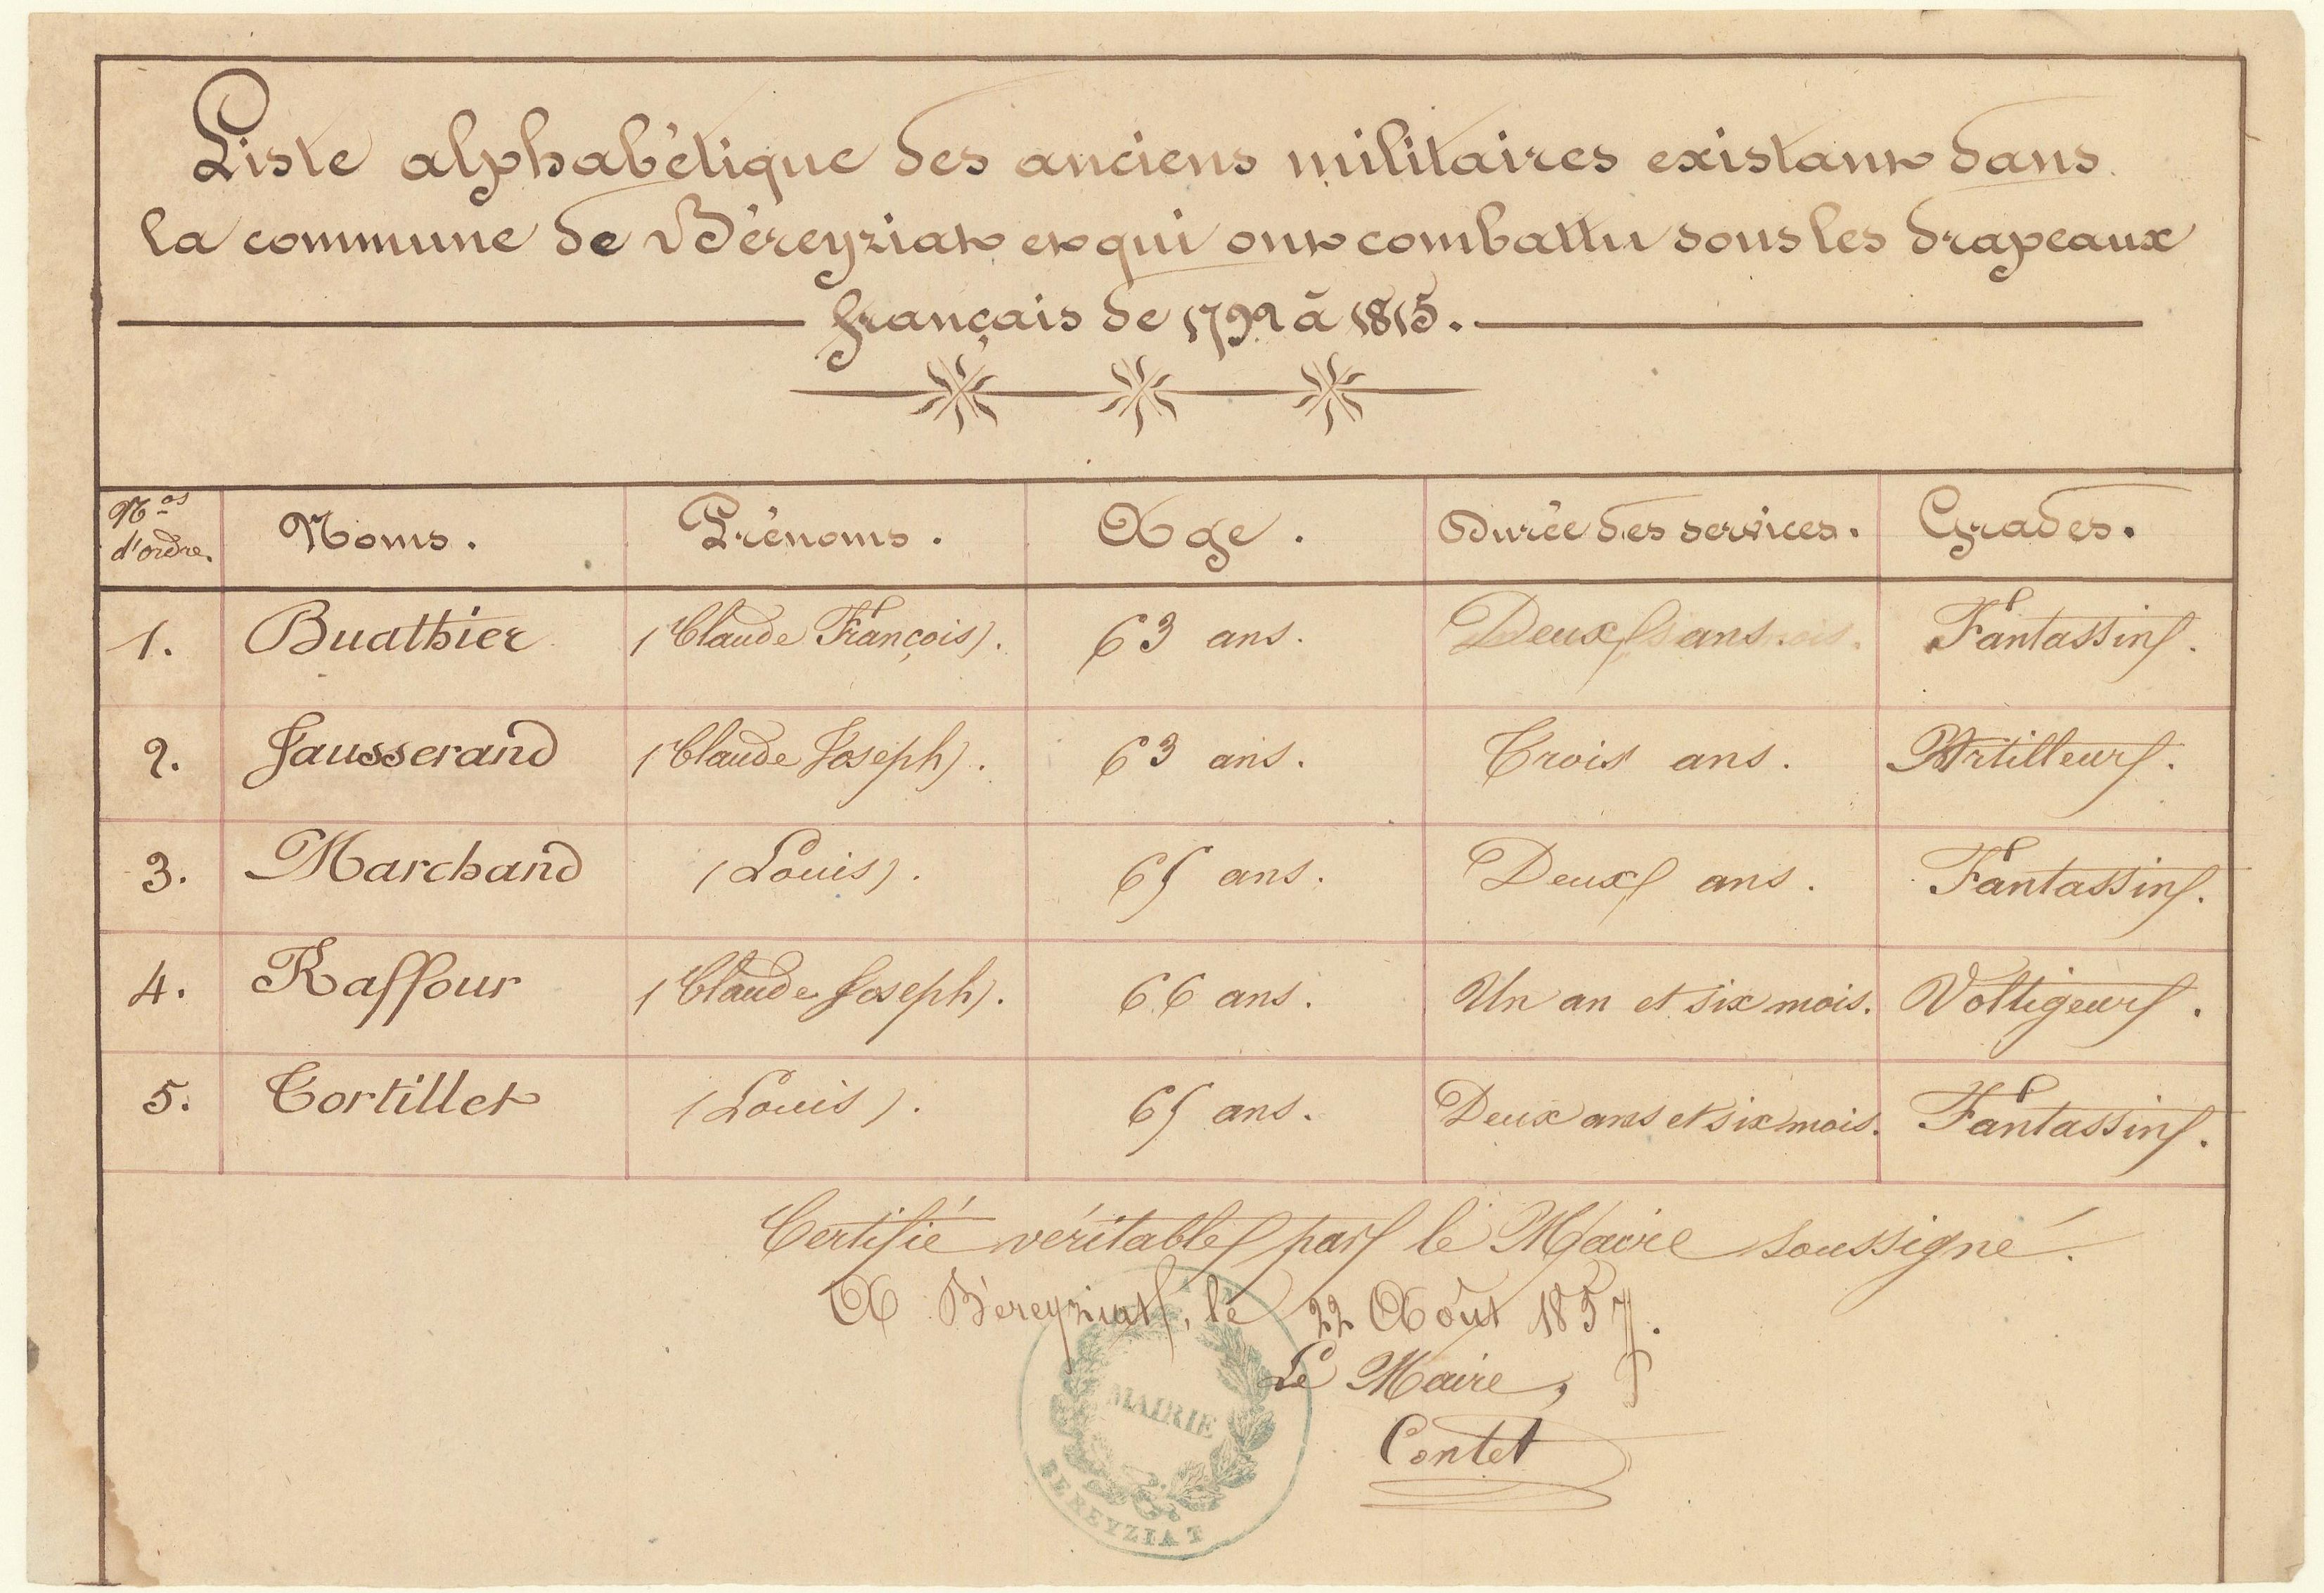 Liste alphabétique des anciens militaires existant dans
la commune de Béreyziat et qui ont combattu sous les drapeaux
français de 1792 à 1815.
Nos d'ordre. Noms. Prénoms. Age. Durée des services. Grades.
1. Buathier (Claude François). 63 ans. Deux ans. Fantassin.
2. Jausserand (Claude Joseph). 63 ans. Trois ans. Artilleur.
3. Marchand (Louis). 65 ans. Deux ans. Fantassin.
4. Raffour (Claude Joseph). 66 ans. Un an et six mois. Voltigeur.
5. Tortillet (Louis). 65 ans. Deux ans et six mois. Fantassin.
Certifié véritable par le Maire soussigné.
A Béreyziat, le 22 Août 1857.
Le Maire,
Contet
MAIRIE
BEREYZIAT